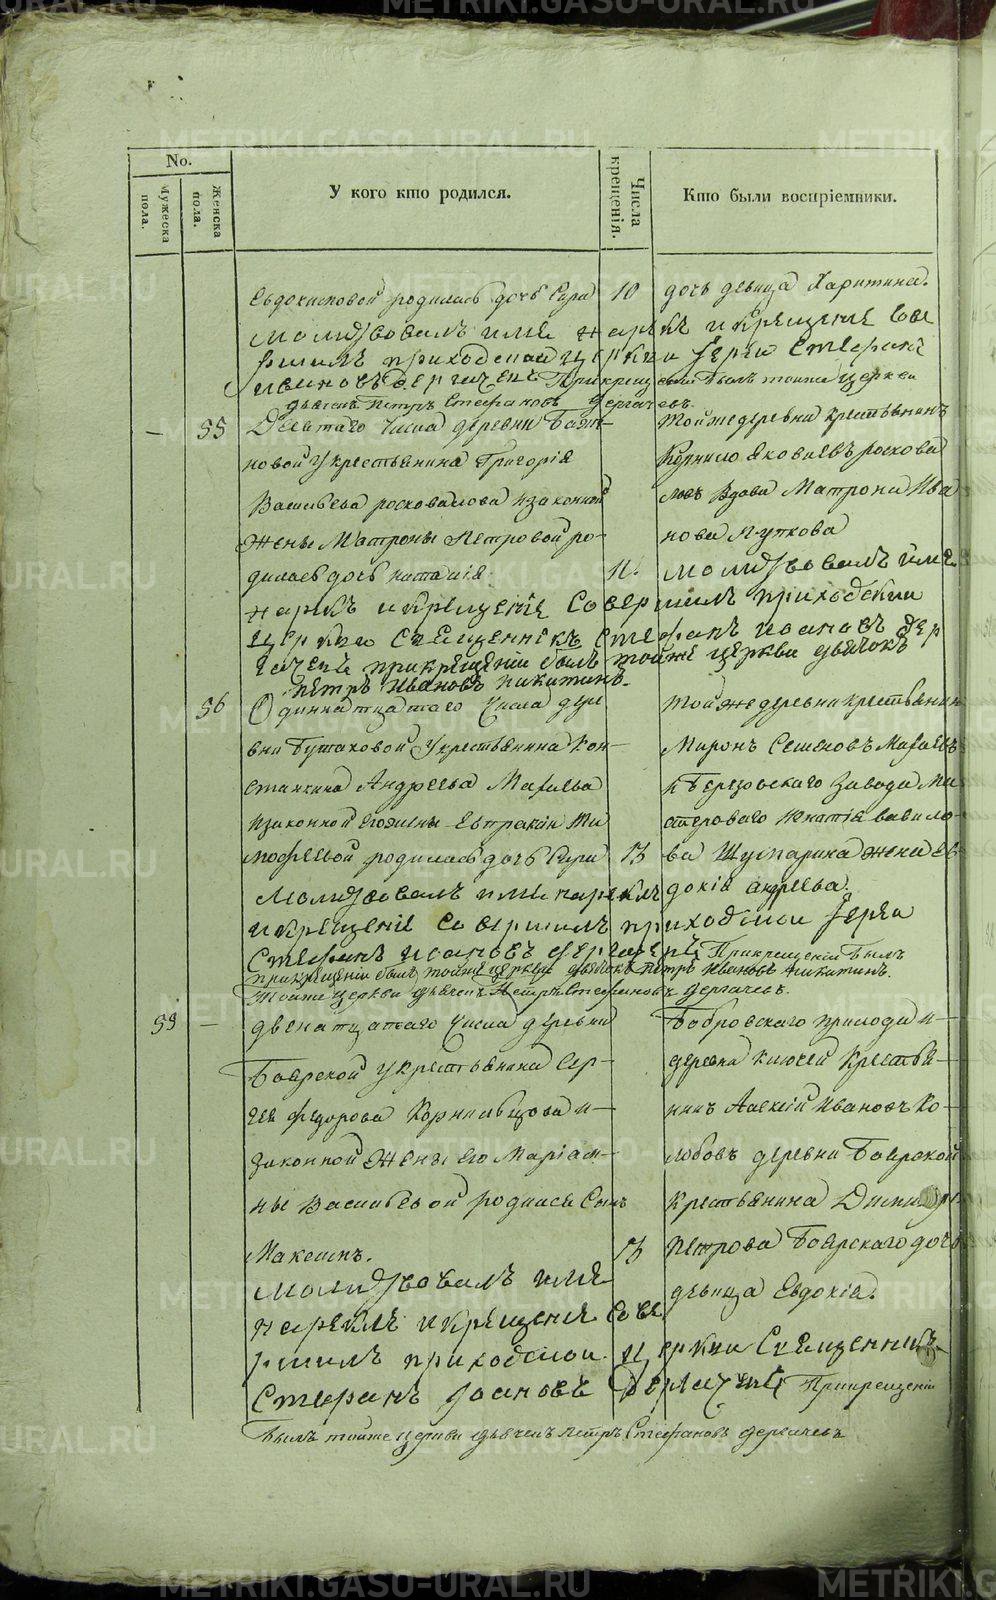 METRIKI.GASO-URAL.RU
No.
Мужеска пола.
Женска пола.
У кого кто родился.
Числа крещенія.
Кто были воспріемники.
Евдокимовой родилась дочь 10 дочь девица Харитина.
молитвовалъ имя нарекъ и крещение сове
ршилъ приходской церкви Іерей Стефанъ
Ивановъ Дергачевъ При крещении былъ тойже церкви
дьячекъ Петръ Стефановъ Дергачевъ.
— 55 Десятаго числа деревни
новой у крестьянина Григорія
Васильева законной
жены Матроны Петровой ро-
дилась дочь наталія 11.
Тойже деревни крестьянинъ
Яковлевъ
Вдова Матрона Ива
нова
молитвовалъ имя
нарекъ и крещение совершилъ приходской
церкви священникъ Стефанъ Ивановъ Дер
гачевъ при крещеніи былъ тойже церкви дьячокъ
петръ Ивановъ никитинъ.
56 Одиннатцатаго числа дере
вни Бутаковой у крестьянина Кон-
стантина Андреева
и законной его жены Евпраксіи Ти
мофеевой родилась дочь 13
Тойже деревни крестьянинъ
Миронъ Семеновъ
Березовскаго завода ма
стероваго Игнатія вавило-
ва жена Ев
докія андреева.
молитвовалъ имя нарекъ
и крещеніе совершилъ приходской Іерей
Стефанъ Ивановъ Дергачевъ При крещеніи былъ
при крещеніи былъ тойже церкви дьячокъ петръ Ивановъ никитинъ.
Тойже церкви дьячекъ Петръ Стефановъ Дергачевъ.
59 — двенатцатаго числа деревни
Боярской у крестьянина Сер-
гея Федорова и
законной жены его Маріам-
ны Васильевой родился сынъ
Максимъ. 13
Бобровскаго
деревни Ключей Крестья-
нинъ Алексій Ивановъ Ко-
лобовъ деревни Боярской
крестьянина
Петрова Боярскаго дочь
девица Евдокія.
молитвовалъ имя
нарекъ и крещение сове
ршилъ приходской церкви Священникъ
Стефанъ Іоановъ Дергачевъ При крещеніи
былъ тойже церкви дьячекъ петръ Стефановъ дергачевъ